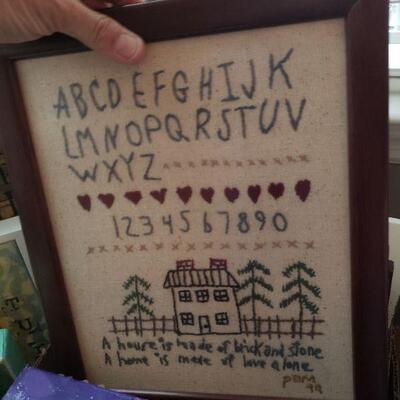 ABCDEFGHIJK
LMNOPQRSTUV
WXYZ
1234567890
A house is made of brick and stone
A home is made of love alone
pam
99